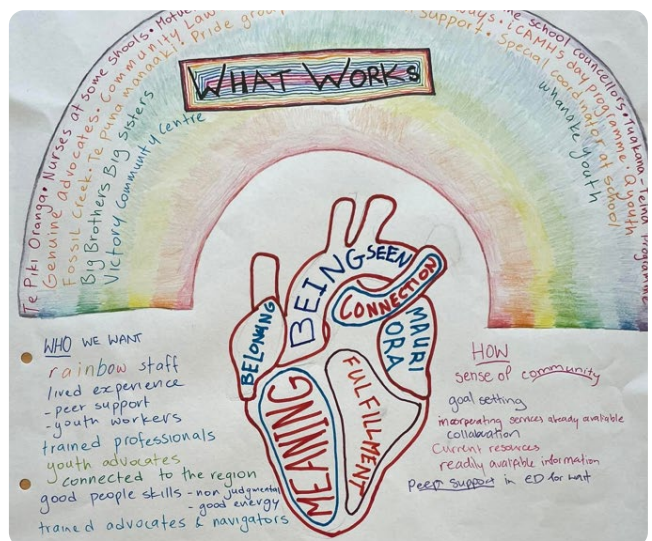 WHAT WORKS
Te Piki Oranga • Nurses at some Shools • Motue
Genuine Advocates. Community Law
Fossil Creek • Te puna manaaki. Pride grou
Big Brothers Big Sisters
Victory Community Centre
me school councellors • Tuakana-Teina Programme
ways • iCAMHS day programme • Q youth
Support • Special coordinator at school
Whanake youth
BEING SEEN
CONNECTION
BELONGING
MAURI
ORA
MEANING
FULFILLMENT
WHO WE WANT
rainbow staff
lived experience
- peer support
- youth workers
trained professionals
youth advocates
connected to the region
good people skills - non judgmental
- good energy
trained advocates & navigators
HOW
sense of community
goal setting
incorperating services already available
collaboration
Current resources
readily available information
peer support in ED for wait